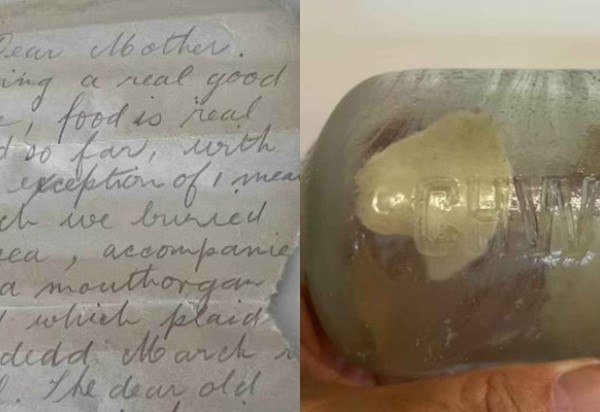 Dear Mother.
ing a real good
e, food is real
d so far, with
exception of 1 mea
ch we buried
ea, accompanie
a mouthorgan
which plaid
dedd March
l. The dear old